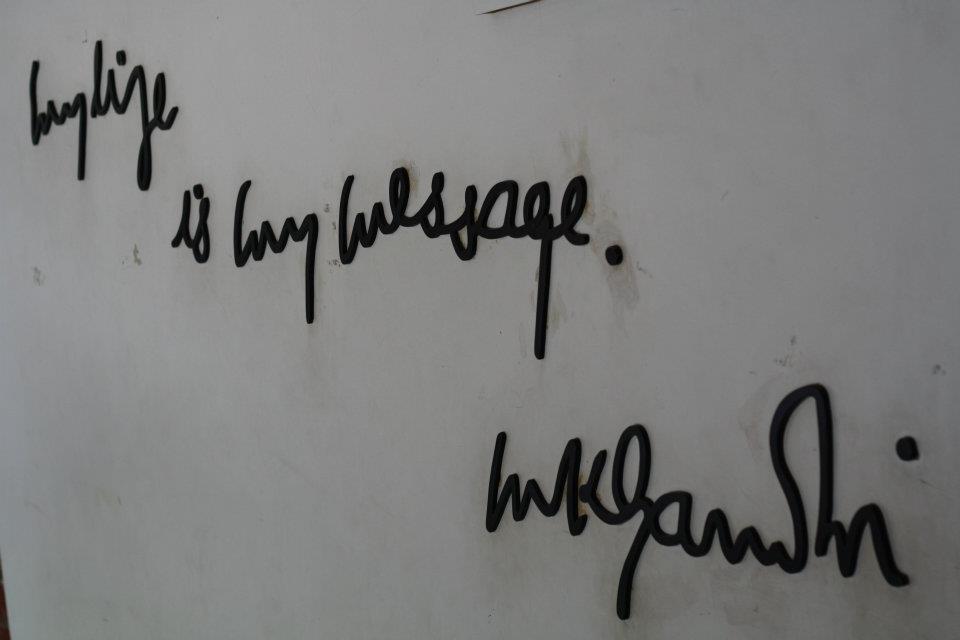 my life
is my message.
mkGandhi